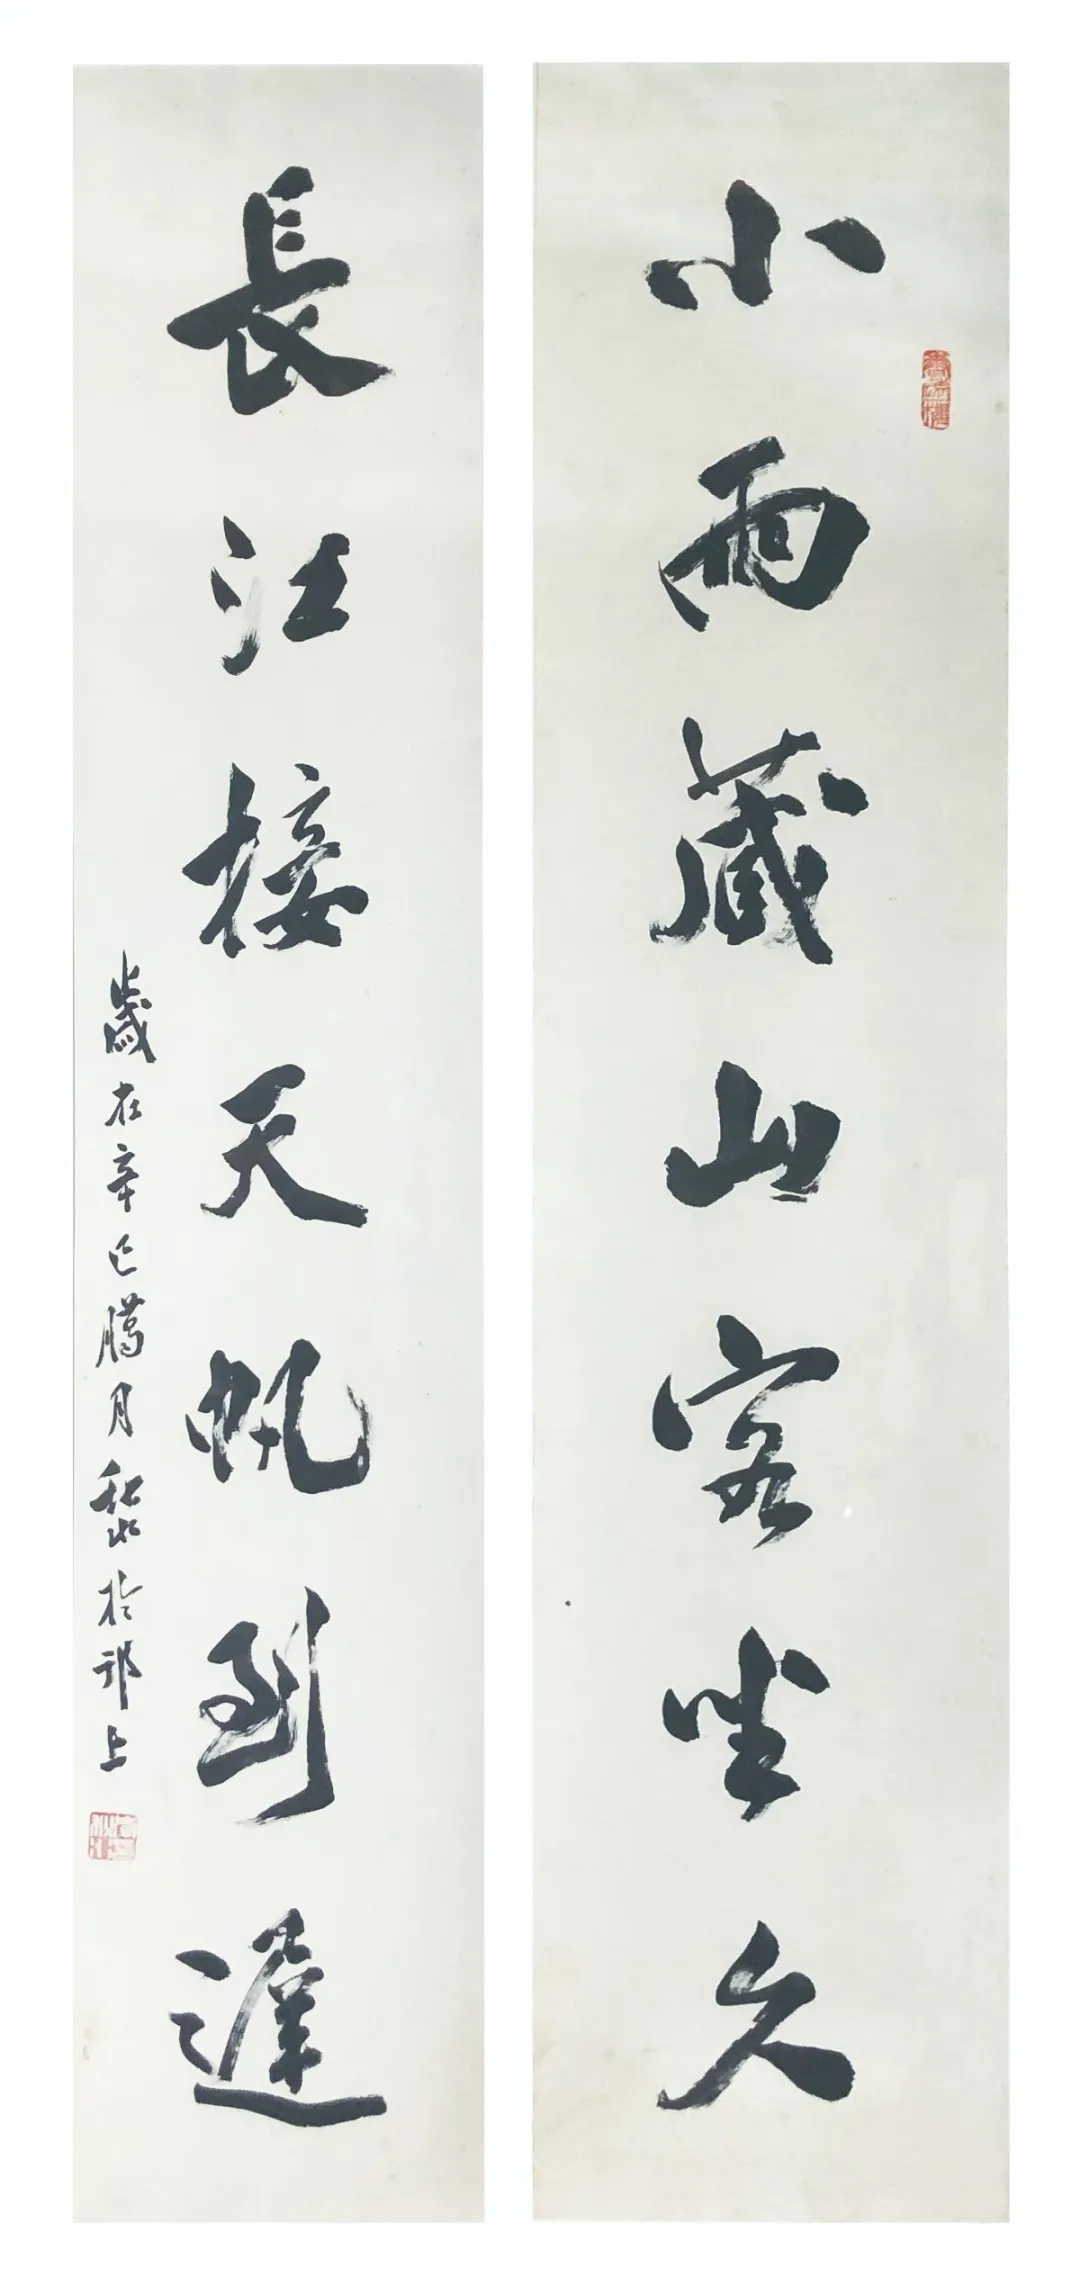 小雨藏山客坐久
長江接天帆到遲
歲在辛巳臈月於邗上